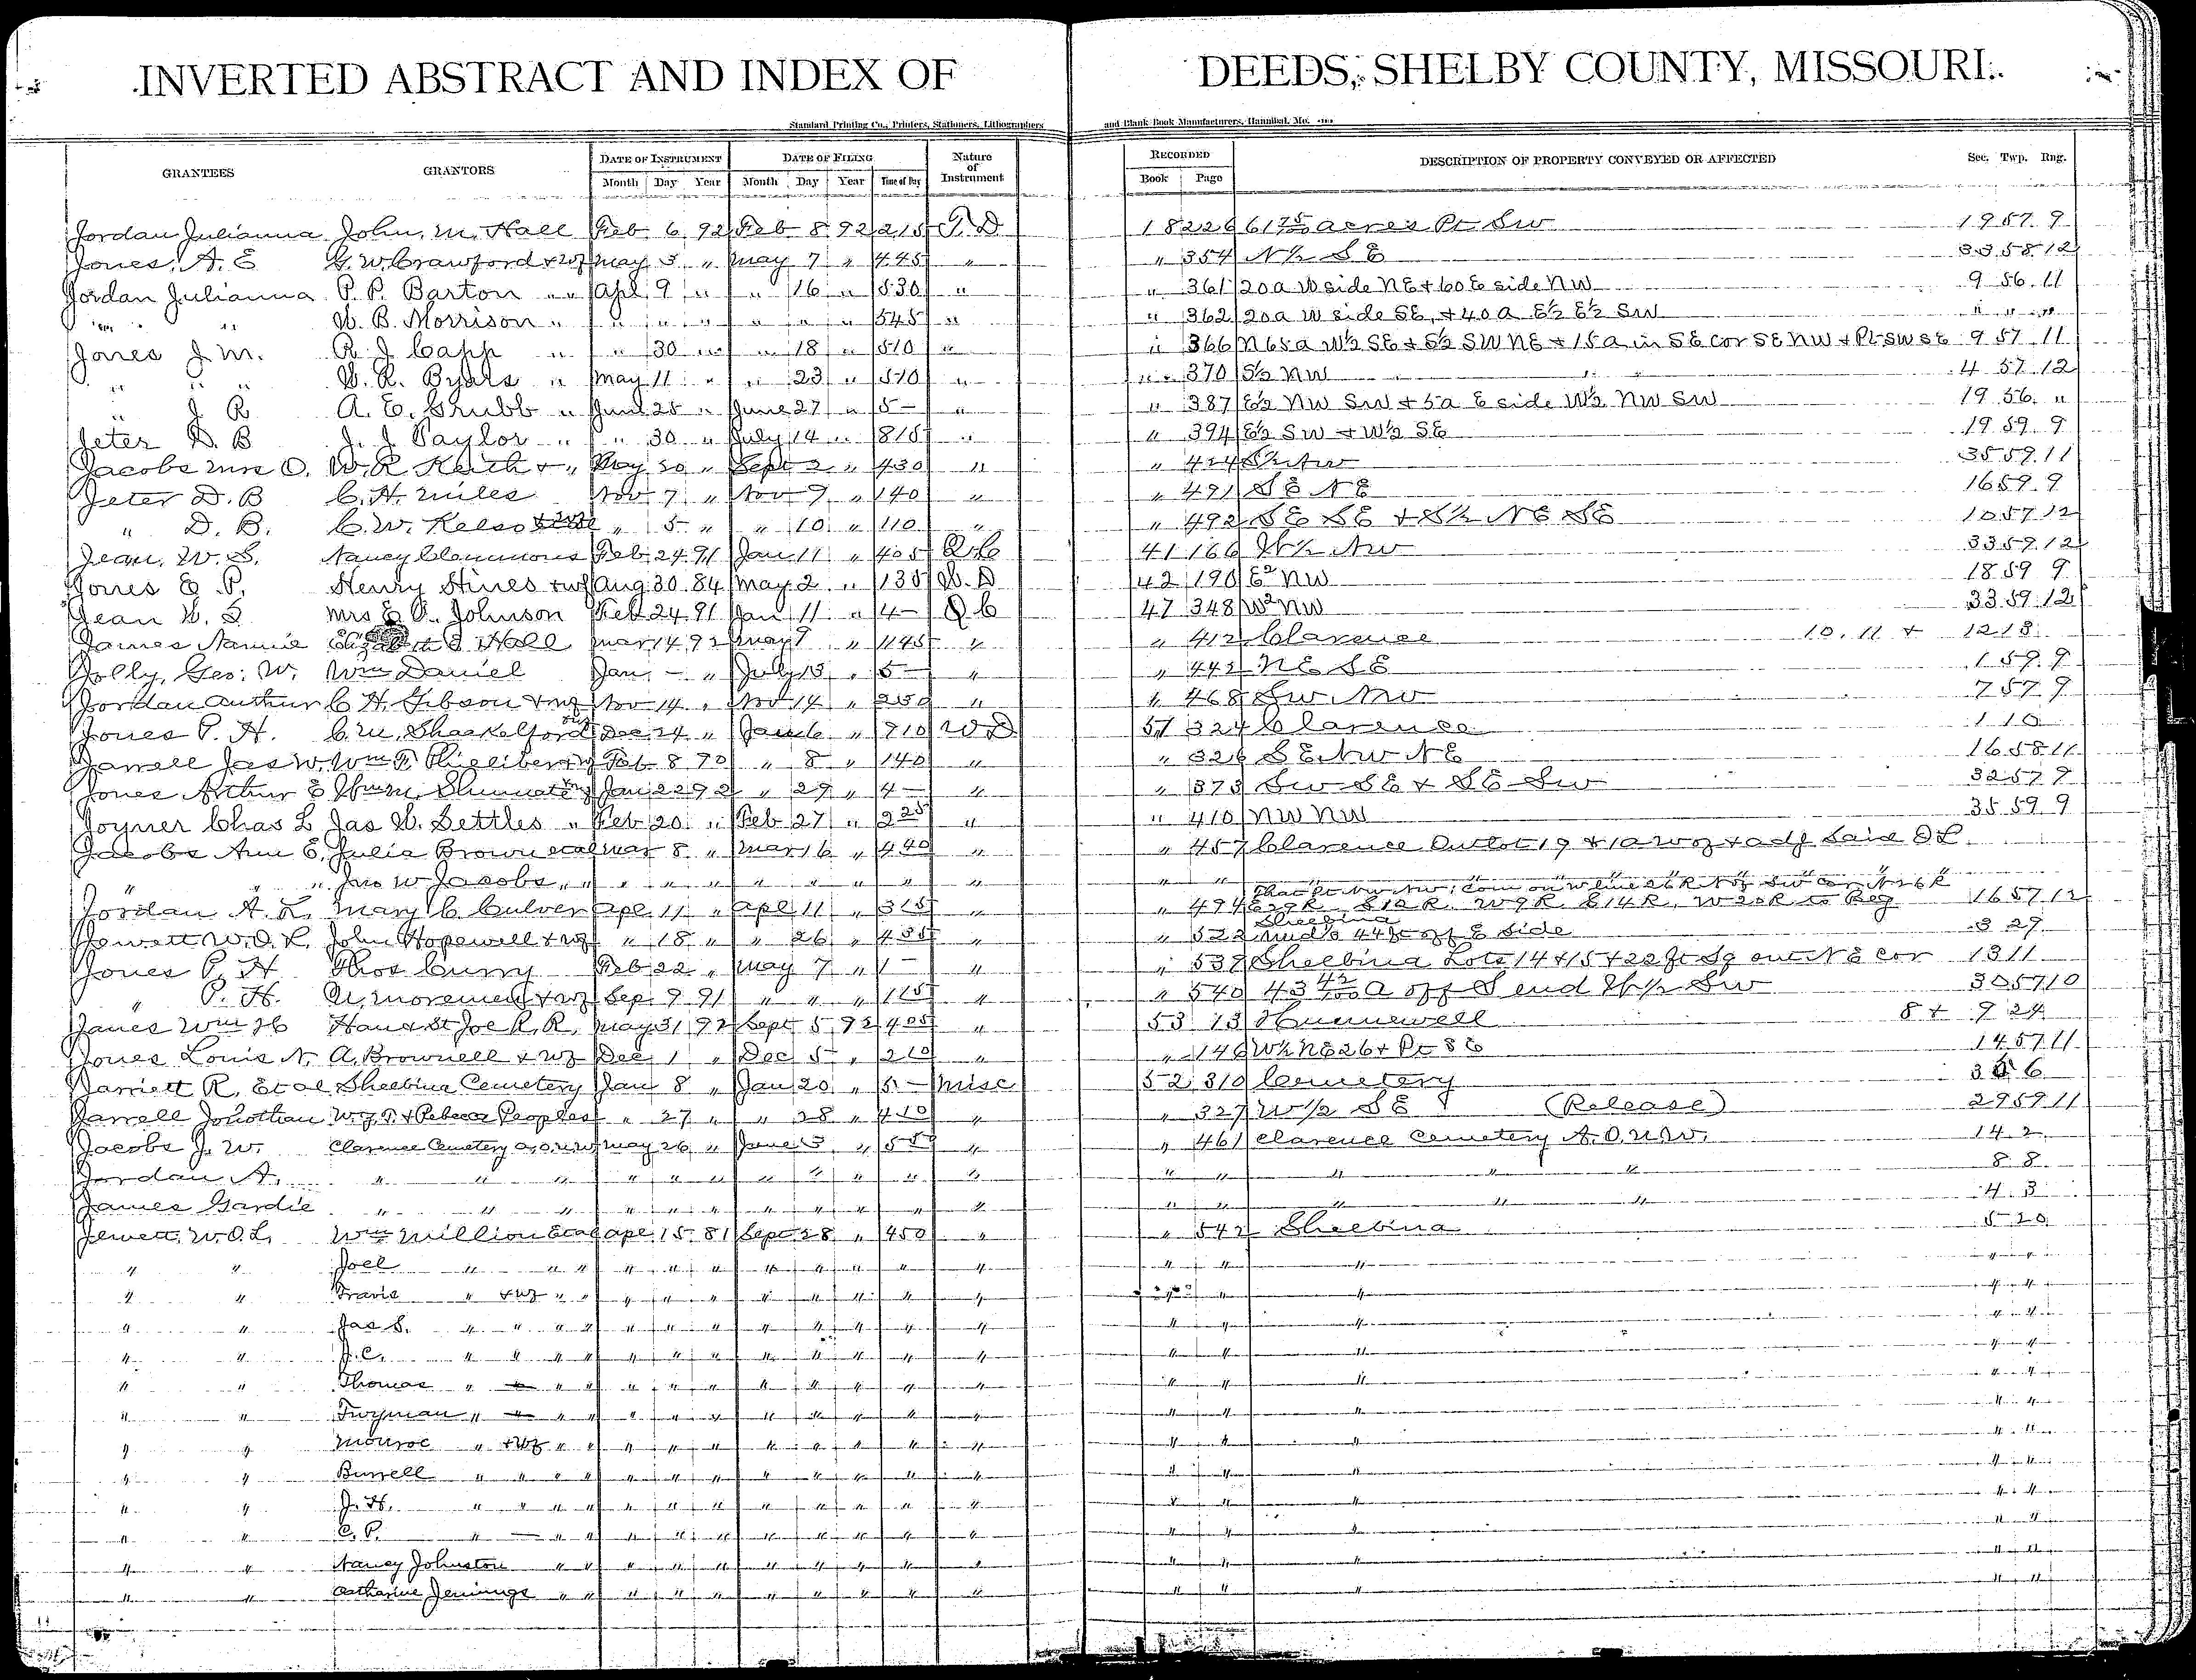 INVERTED ABSTRACT AND INDEX OF DEEDS, SHELBY COUNTY, MISSOURI.
Standard Printing Co., Printers, Stationers, Lithographers and Blank Book Manufacturers, Hannibal, Mo.
GRANTEES GRANTORS DATE OF INSTRUMENT DATE OF FILING Nature of Instrument RECORDED DESCRIPTION OF PROPERTY CONVEYED OR AFFECTED Sec. Twp. Rng.
Month Day Year Month Day Year Time of Day Book Page
Jordan Julianna John. M. Hall Feb 6 92 Feb 8 92 215 T. D 18 226 61 75/100 acres Pt SW 19 57 9
Jones, A. E G. W. Crawford & wf May 3 " May 7 " 445 " " 354 N½ SE 33 58 12
Jordan Julianna P. P. Barton " " Apl 9 " " 16 " 830 " " 361 20a W side NE & 60 E side NW 9 56 11
" " W. B. Morrison " " " " " " " 545 " " 362 20a W side SE, & 40 a E½ E½ SW " " "
Jones J. M. R. J. Capp " " 30 " " 18 " 510 " " 366 N 65a W½ SE & S½ SW NE & 15 a in SE cor SE NW & Pt SW SE 9 57 11
" " " W. R. Byars " May 11 " " 23 " 510 " " 370 S½ NW 4 57 12
" J R A. E. Grubb " June 25 " June 27 " 5- " " 387 E½ NW SW & 5a E side W½ NW SW 19 56 "
Jeter D. B J. J. Taylor " " 30 " July 14 " 815 " " 394 E½ SW & W½ SE 19 59 9
Jacobs Mrs O. W. R. Keith & " May 20 " Sept 2 " 430 " " 424 S½ NW 35 59 11
Jeter D. B C. H. Miles Nov 7 " Nov 9 " 140 " " 491 SE NE 16 59 9
" D. B. C. W. Kelso & wf " 5 " " 10 " 110 " " 492 SE SE & S½ NE SE 10 57 12
Jean, W. S. Nancy Clemmons Feb 24 91 Jan 11 " 405 Q C 41 166 W½ NW 33 59 12
Jones E. P. Henry Hines & wf Aug 30 84 May 2 " 135 W. D 42 190 E² NW 18 59 9
Jean W. S Mrs E. A. Johnson Feb 24 91 Jan 11 " 4- Q C 47 348 W² NW 33 59 12
James Nannie Hall Mar 14 92 May 9 " 1145 " " 412 Clarence 10. 11 & 12 13
Jolly, Geo. W. Wm Daniel Jan - " July 13 " 5- " " 442 NE SE 1 59 9
Jordan Arthur C. H. Gibson & wf Nov 14 " Nov 14 " 250 " " 468 SW NW 7 57 9
Jones P. H. C. M. Shackelford Dec 24 " Jan 6 " 910 W D 51 324 Clarence 1 10
Jarrell Jas W. Wm F. & wf Feb 8 90 " 8 " 140 " " 326 SE NW NE 16 58 11
Jones Arthur E Wm M. & wf Jan 22 92 " 29 " 4- " " 373 SW SE & SE SW 32 57 9
Joyner Chas L Jas W. Settles " Feb 20 " Feb 27 " 225 " " 410 NW NW 35 59 9
Jacobs Ann E. Julia Brown et al Mar 8 " Mar 16 " 440 " " 457 Clarence Outlot 19 & 10a W of & adj said O L
" " " Jno W Jacobs " " " " " " " " " " " " " " " "
That Pt NW NW; Com on W line 26 R N of SW cor N 26 R
Jordan A. L. Mary C. Culver Apl 11 " Apl 11 " 315 " " 494 E 29 R S 12 R. W 9 R. S 14 R. W 20 R to Beg 16 57 12
Shelbina
Jewett W. O. L. John Hopewell & wf " 18 " " 26 " 435 " " 522 Mid ⅓ 44 ft off E side 3 29
Jones P. H Thos Curry Feb 22 " May 7 " 1- " " 539 Shelbina Lots 14 & 15 & 22 ft Sq out NE cor 13 11
" P. H. M. & wf Sep 9 91 " " " 115 " " 540 43 42/100 a off S end W½ SW 30 57 10
Janes Wm H Han & St Joe R. R. May 31 92 Sept 5 92 405 " 53 13 Hunnewell 8 & 9 24
Jones Louis N. A. Brownell & wf Dec 1 " Dec 5 " 210 " " 146 W½ NE 26 & Pt SE 14 57 11
Jarriett R. Et al Shelbina Cemetery Jan 8 " Jan 20 " 5- Misc 52 310 Cemetery 3 6 6
Jarrell Jonothan W. G. T. & Rebecca Peoples " 27 " " 28 " 410 " " 327 W½ SE (Release) 29 59 11
Jacobs J. W. Clarence Cemetery A. O. U. W. May 26 " June 3 " 550 " " 461 Clarence Cemetery A. O. U. W. 14 2
Jordan A. " " " " " " " " " " " " " " " " 8 8
James Gardie " " " " " " " " " " " " " " " " 4 3
Jewett, W. O. L. Wm Million et al Apl 15 81 Sept 28 " 450 " " 542 Shelbina 5 20
" " Joel " " " " " " " " " " " " " " " "
" " Travis " & wf " " " " " " " " " " " " " "
" " Jas S. " " " " " " " " " " " " " " " " "
" " J. C. " " " " " " " " " " " " " " " " "
" " Thomas " - " " " " " " " " " " " " " " "
" " Twyman " - " " " " " " " " " " " " " " "
" " Monroe " & wf " " " " " " " " " " " " " " "
" " Burrell " " " " " " " " " " " " " " " " "
" " J. H. " " " " " " " " " " " " " " " " "
" " C. P. " - " " " " " " " " " " " " " " "
" " Nancy Johnston " " " " " " " " " " " " " " "
" " Catharine Jennings " " " " " " " " " " " " " " "